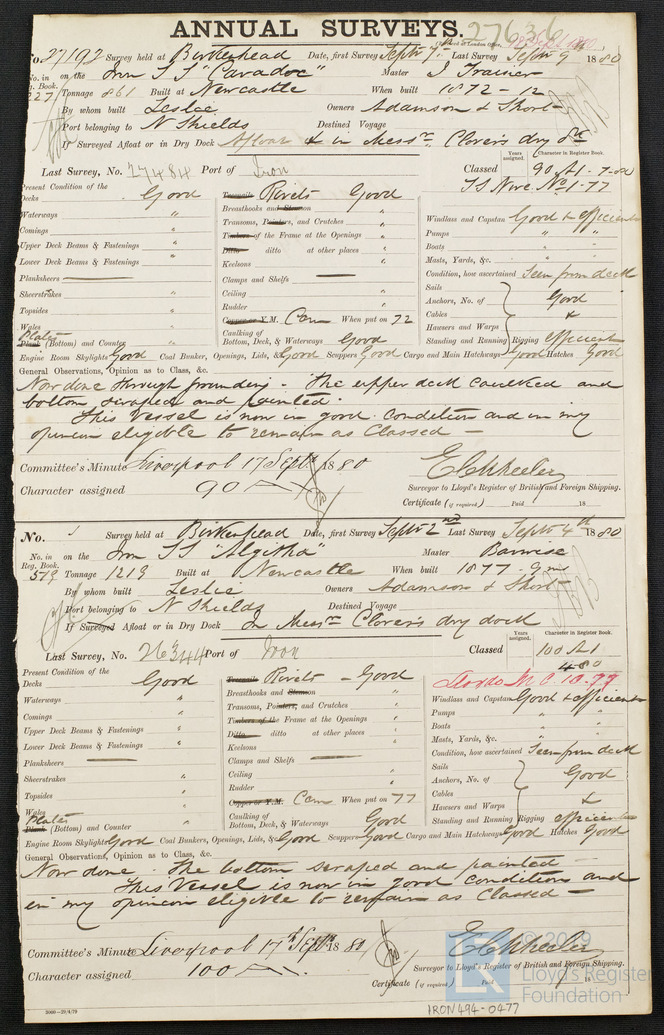 ANNUAL SURVEYS.
27636
No. 27192 Survey held at Birkenhead Date, first Survey Septr 7th Last Survey Septr 9th 1880
No. in Reg. Book. on the Iron SS "Caradoc" Master J Trainer
227 Tonnage 861 Built at Newcastle When built 1872-12
By whom built Leslie Owners Adamson & Short
Port belonging to N Shields Destined Voyage
If Surveyed Afloat or in Dry Dock Afloat & in Messrs Clover's dry dk
Last Survey, No. 27484 Port of Iron
Years assigned. Character in Register Book.
Classed 90 A1-7-80
SS Nwc. No 1-77
Present Condition of the
Decks Good
Waterways "
Comings "
Upper Deck Beams & Fastenings "
Lower Deck Beams & Fastenings "
Planksheers
Sheerstrakes "
Topsides "
Wales "
Plates
Plank (Bottom) and Counter "
Treenails Rivets Good
Breasthooks and Stemson "
Transoms, Pointers, and Crutches "
Timbers of the Frame at the Openings "
Ditto ditto at other places "
Keelsons "
Clamps and Shelfs
Ceiling "
Rudder "
Copper or Y.M. Cem When put on 72
Caulking of Bottom, Deck, & Waterways Good
Windlass and Capstan Good & efficient
Pumps " "
Boats " "
Masts, Yards, &c. " "
Condition, how ascertained Seen from deck
Sails
Anchors, No. of Good
Cables &
Hawsers and Warps
Standing and Running Rigging efficient
Engine Room Skylights Good Coal Bunker, Openings, Lids, &c Good Scuppers Good Cargo and Main Hatchways Good Hatches Good
General Observations, Opinion as to Class, &c.
Now done through grounding - The upper deck caulked and
bottom scraped and painted.
This Vessel is now in good condition and in my
opinion eligible to remain as Classed -
Committee's Minute Liverpool 17 Septr 1880
Character assigned 90 A1
E C Wheeler
Surveyor to Lloyd's Register of British and Foreign Shipping.
Certificate (if required) Paid 18
No. Survey held at Birkenhead Date, first Survey Septr 2nd Last Survey Septr 4th 1880
No. in Reg. Book. on the Iron SS "Algitha" Master Barwise
519 Tonnage 1219 Built at Newcastle When built 1877-9 m
By whom built Leslie Owners Adamson & Short
Port belonging to N Shields Destined Voyage
If Surveyed Afloat or in Dry Dock In Messrs Clover's dry dock
Last Survey, No. 26344 Port of Iron
Years assigned. Character in Register Book.
Classed 100 A1
4 80
Lloyds MC 10.77
Present Condition of the
Decks Good
Waterways "
Comings "
Upper Deck Beams & Fastenings "
Lower Deck Beams & Fastenings "
Planksheers
Sheerstrakes "
Topsides "
Wales "
Plates
Plank (Bottom) and Counter "
Treenails Rivets - Good
Breasthooks and Stemson "
Transoms, Pointers, and Crutches "
Timbers of the Frame at the Openings "
Ditto ditto at other places "
Keelsons "
Clamps and Shelfs
Ceiling "
Rudder "
Copper or Y.M. Cem When put on 77
Caulking of Bottom, Deck, & Waterways Good
Windlass and Capstan Good & efficient
Pumps " "
Boats " "
Masts, Yards, &c. " "
Condition, how ascertained Seen from deck
Sails
Anchors, No. of Good
Cables &
Hawsers and Warps
Standing and Running Rigging efficient
Engine Room Skylights Good Coal Bunkers, Openings, Lids, &c Good Scuppers Good Cargo and Main Hatchways Good Hatches Good
General Observations, Opinion as to Class, &c.
Now done. The bottom scraped and painted -
This Vessel is now in good condition and
in my opinion eligible to remain as Classed -
Committee's Minute Liverpool 17th Septr 1880
Character assigned 100 A1.
E C Wheeler
Surveyor to Lloyd's Register of British and Foreign Shipping.
Certificate (if required) Paid 18
© 2019
Lloyd's Register
Foundation
IRON494-0477